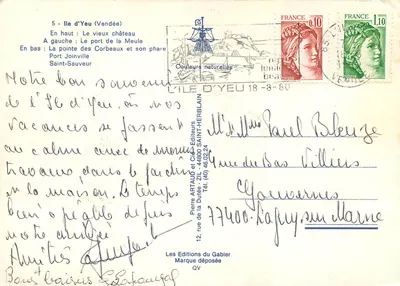 5 - Ile d'Yeu (Vendée)
En haut : Le vieux château
A gauche : Le port de la Meule
En bas : La pointe des Corbeaux et son phare
Port Joinville
Saint-Sauveur
Couleurs naturelles
FRANCE
0,10
FRANCE
1,10
L'ILE D'YEU 18-8-80
Notre bon souvenir
de l'Ile d'Yeu, où nos
vacances se passent
au calme avec de menus
travaux dans le jardin
et la maison. Le temps
est agréable depuis
notre arrivée
Amitiés
Bons baisers
Pierre ARTAUD et Cie - Editeurs
12, rue de la Dutée - ZIL - 44800 SAINT-HERBLAIN
Tél. (40) 46.02.24
Mr & Mme Paul
rue du Bas Villiers
Gouvernes
77400 Lagny-sur-Marne
Les Editions du Gabier
Marque déposée
QV